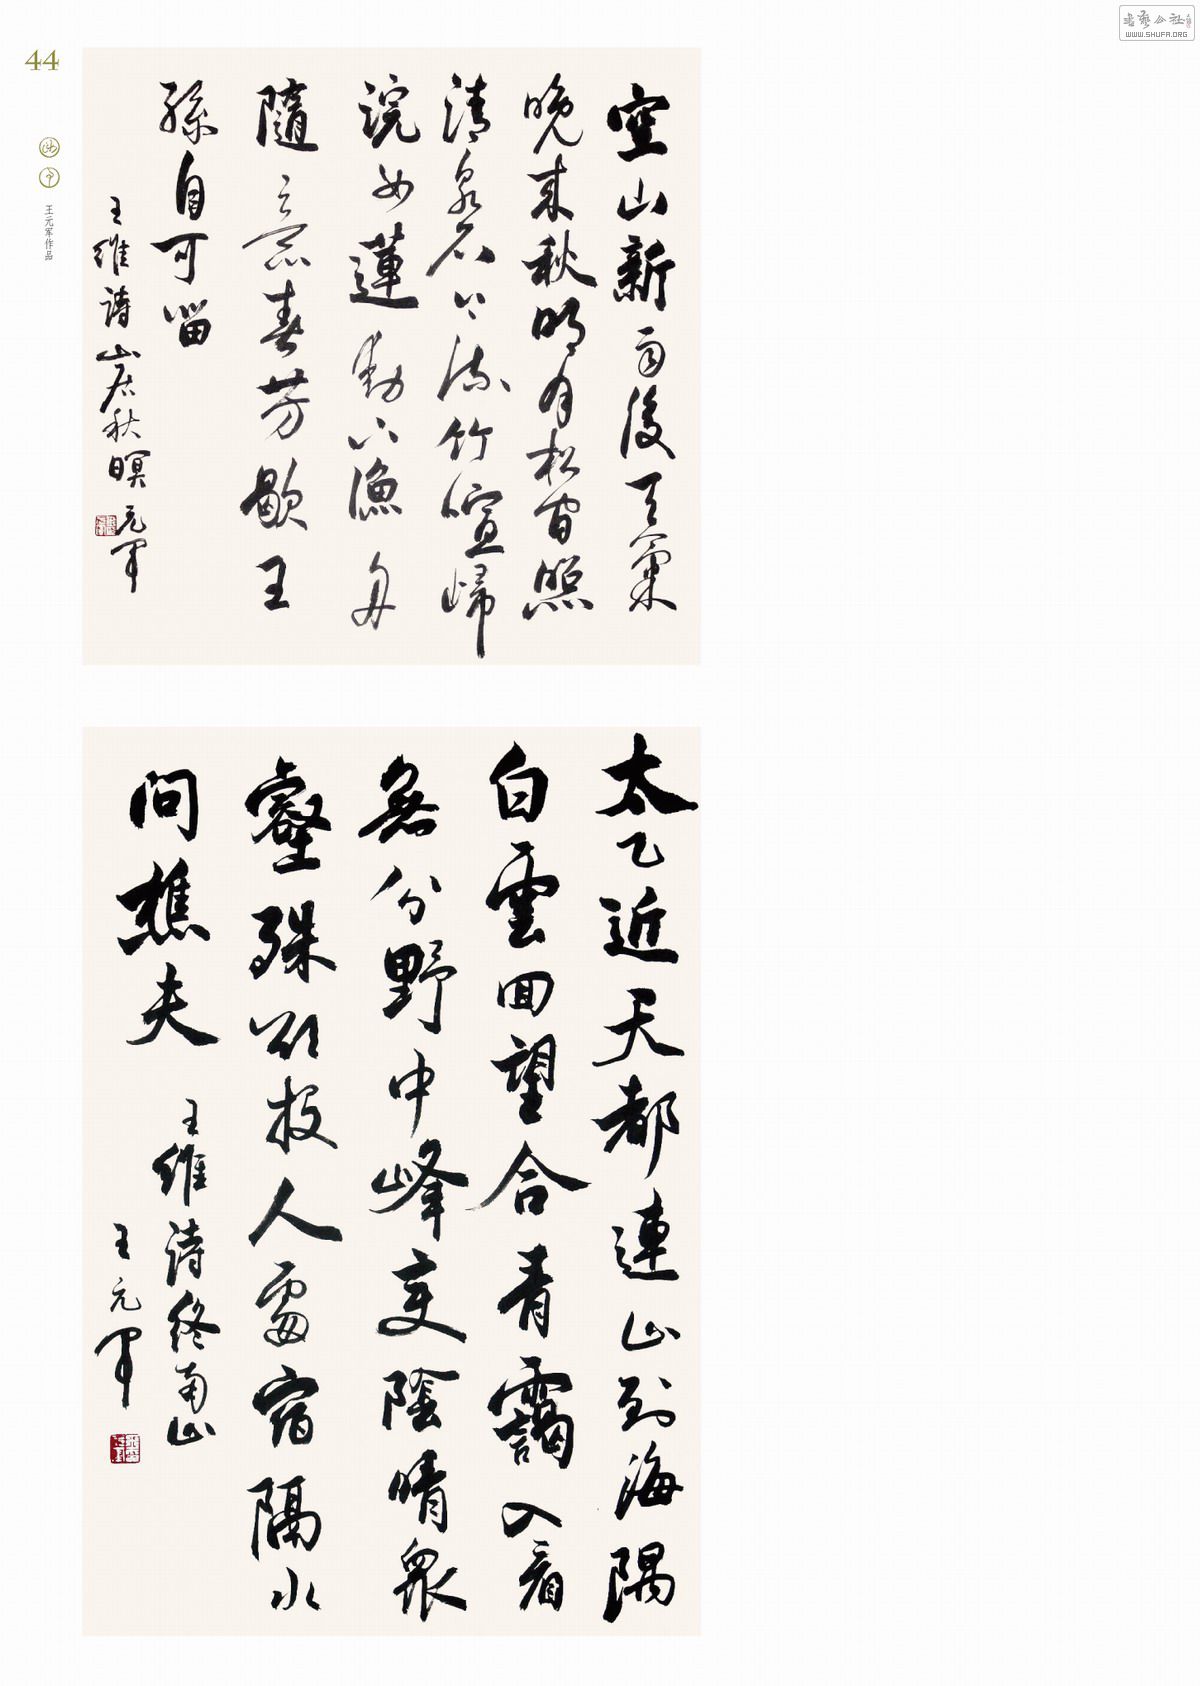 44
王元军作品
書藝公社
WWW.SHUFA.ORG
空山新雨後天氣
晚来秋明月松間照
清泉石上流竹喧歸
浣女蓮動下漁舟
隨意春芳歇王
孫自可留
王維詩山居秋暝元軍
太乙近天都連山到海隅
白雲回望合青靄入看
無分野中峰变陰晴衆
壑殊欲投人處宿隔水
問樵夫
王維詩終南山
王元軍